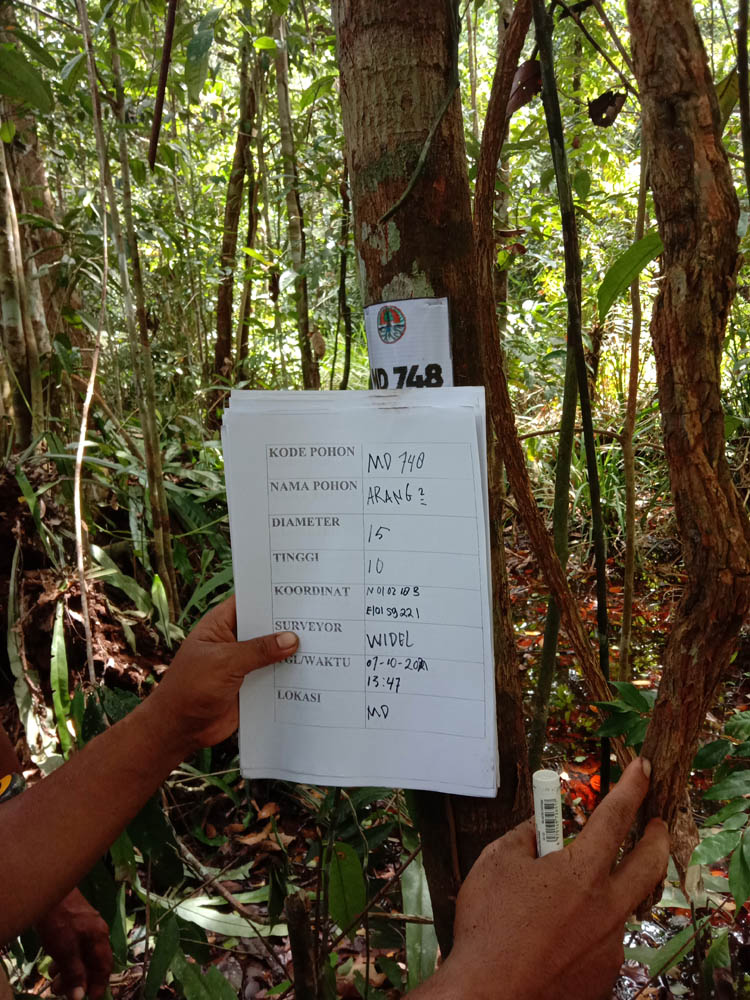 MD 748
KODE POHON MD 748
NAMA POHON ARANG ?
DIAMETER 15
TINGGI 10
KOORDINAT N 01 02 18 3
E 101 59 22 1
SURVEYOR WIDEL
TGL/WAKTU 07-10-2021
13:47
LOKASI MD